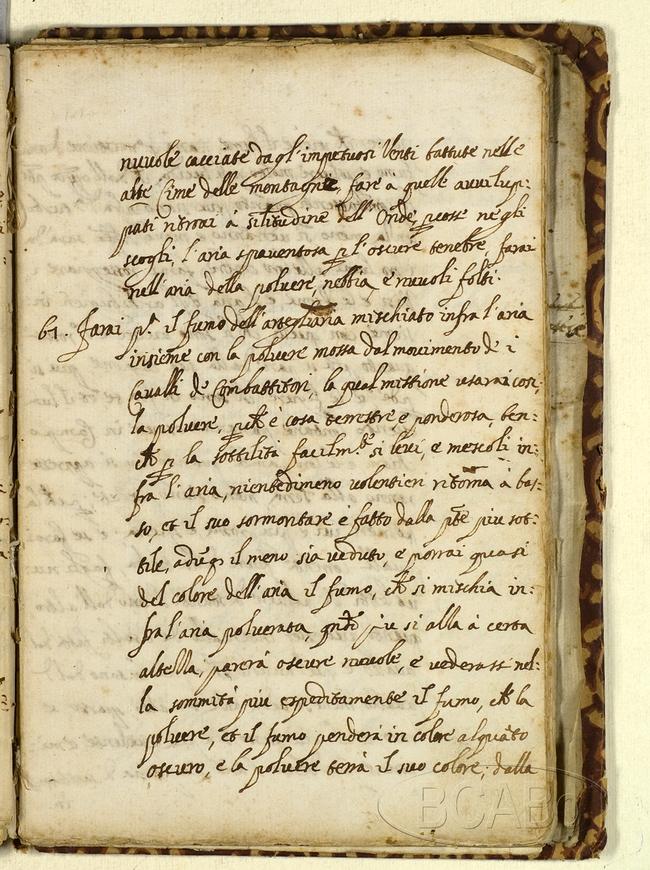 nuuole cacciate dagl'impetuosi Venti battute nelle
alte Cime delle montagnie, fare à quelle auuilup:
pati ritrosi á similitudine dell'Onde, pcosse negli
scogli, l'aria spauentosa p l'oscure tenebre farai
nell'aria della poluere, nebbia, e nuuoli folti.
67. Farai pª. il fumo dell'arteglieria mischiato infra l'aria
insieme con la poluere mossa dal mouimento de i
Caualli de Combattitori, la qual mistione usarai cosi,
la poluere, pche è cosa terrestre, e ponderosa, ben:
che p la sottilità facilm.te si leui, e mescoli in:
fra l'aria, nientedimeno volentieri ritorna à bas:
so, et il suo sormontare è fatto dalla pte piu sot:
tile, aduq il meno sia veduto, e porrai quasi
del colore dell'aria il fumo, che si mischia in:
fra l'aria poluerata, qnto piu si alza à certa
altezza, parerà oscure nuuole, e vederassi nel:
la sommitá piu espeditamente il fumo, che la
poluere, et il fumo penderá in colore alquãto
oscuro, e la poluere terrà il suo colore; dalla
BCABo